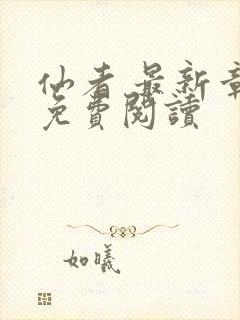 仙者 最新章
免費閱讀
如曦